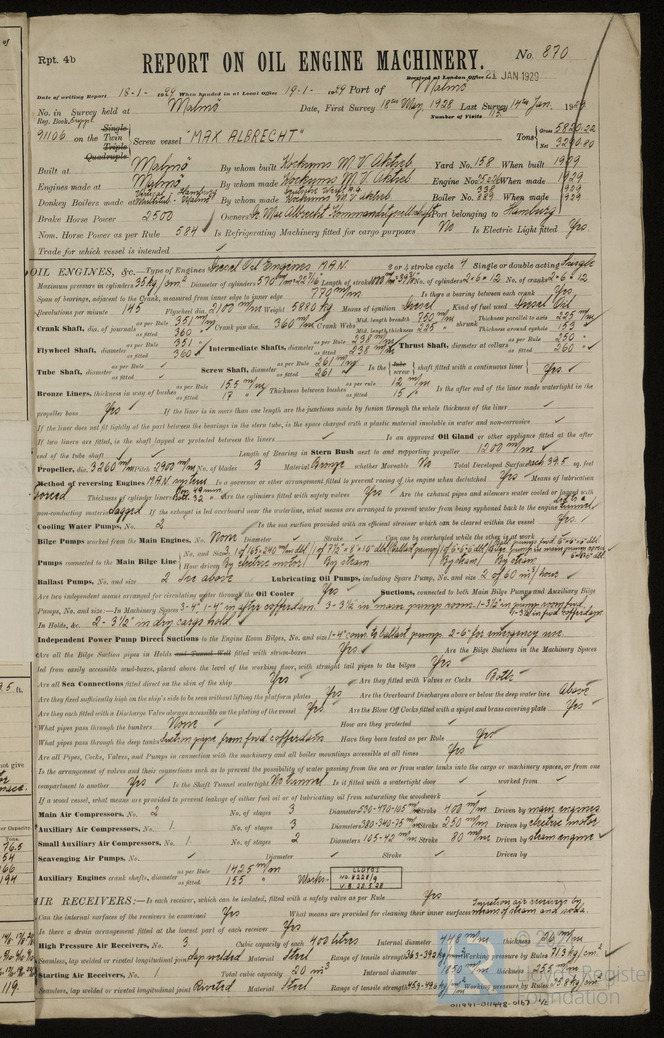 Rpt. 4b
REPORT ON OIL ENGINE MACHINERY.
No. 870
Received at London Office 21 JAN 1929
Date of writing Report 18-1-1929 When handed in at Local Office 19-1-1929 Port of Malmö
No. in Survey held at Malmö Date, First Survey 18th May 1928 Last Survey 14th Jan. 1929
Reg. Book. Number of Visits 115
91106 on the Single Twin Triple Quadruple Screw vessel "MAX ALBRECHT" Tons Gross 5820.22 Net 3290.80
Built at Malmö By whom built Kockums M.V. Aktieb. Yard No. 158 When built 1929
Engines made at Malmö By whom made Kockums M.V. Aktieb. Engine Nos. When made 1929
Donkey Boilers made at By whom made Kockums M.V. Aktieb. Boiler No. When made 1929
Brake Horse Power 2500 Owners Max Albrecht Port belonging to Hamburg
Nom. Horse Power as per Rule 584 Is Refrigerating Machinery fitted for cargo purposes No Is Electric Light fitted Yes.
Trade for which vessel is intended
OIL ENGINES, &c.—Type of Engines Diesel Oil Engines M.A.N. 2 or 4 stroke cycle 4 Single or double acting Single
Maximum pressure in cylinders 35 kg/cm² Diameter of cylinders 570 m/m Length of stroke No. of cylinders 2×6=12 No. of cranks 2×6=12
Span of bearings, adjacent to the Crank, measured from inner edge to inner edge 770 m/m Is there a bearing between each crank Yes
Revolutions per minute 145 Flywheel dia. 2100 m/m Weight 5880 kg Means of ignition Diesel Kind of fuel used Diesel Oil
Crank Shaft, dia. of journals as per Rule 351 m/m as fitted 360 Crank pin dia. 360 m/m Crank Webs Mid. length breadth 750 m/m Mid. length thickness 225 shrunk Thickness parallel to axis 225 m/m Thickness around eyehole 153
Flywheel Shaft, diameter as per Rule 351 as fitted 360 Intermediate Shafts, diameter as per Rule 238 m/m as fitted 238 m/m Thrust Shaft, diameter at collars as per Rule 250 as fitted 260
Tube Shaft, diameter as per Rule as fitted Screw Shaft, diameter as per Rule 261 m/m as fitted 261 Is the tube screw shaft fitted with a continuous liner Yes
Bronze Liners, thickness in way of bushes as per Rule 15.5 m/m as fitted 17 Thickness between bushes as per rule 12 m/m as fitted 15 Is the after end of the liner made watertight in the
propeller boss Yes If the liner is in more than one length are the junctions made by fusion through the whole thickness of the liner
If the liner does not fit tightly at the part between the bearings in the stern tube, is the space charged with a plastic material insoluble in water and non-corrosive
If two liners are fitted, is the shaft lapped or protected between the liners Is an approved Oil Gland or other appliance fitted at the after
end of the tube shaft Length of Bearing in Stern Bush next to and supporting propeller 1200 m/m
Propeller, dia. 3260 m/m Pitch 2900 m/m No. of blades 3 Material Bronze whether Moveable No Total Developed Surface each 39.5 sq. feet
Method of reversing Engines M.A.N. system Is a governor or other arrangement fitted to prevent racing of the engine when declutched Yes Means of lubrication
forced Thickness of cylinder liners Are the cylinders fitted with safety valves Yes Are the exhaust pipes and silencers water cooled or lagged with
non-conducting material lagged If the exhaust is led overboard near the waterline, what means are arranged to prevent water from being syphoned back to the engine led to a funnel
Cooling Water Pumps, No. 2 Is the sea suction provided with an efficient strainer which can be cleared within the vessel Yes.
Bilge Pumps worked from the Main Engines, No. None Diameter Stroke Can one be overhauled while the other is at work
Pumps connected to the Main Bilge Line No. and Size How driven By electric motor By steam By steam By steam
Ballast Pumps, No. and size 2 See above Lubricating Oil Pumps, including Spare Pump, No. and size 2 of 60 m³/hour
Are two independent means arranged for circulating water through the Oil Cooler Yes Suctions, connected to both Main Bilge Pumps and Auxiliary Bilge
Pumps, No. and size:—In Machinery Spaces 3-4", 1-4" in after cofferdam. 3-3½" in main pump room. 1-3½" in pump room fwd.
In Holds, &c. 2-3½" in dry cargo hold
Independent Power Pump Direct Suctions to the Engine Room Bilges, No. and size 1-4" conn. to ballast pump. 2-6" for emergency use
Are all the Bilge Suction pipes in Holds and Tunnel Well fitted with strum-boxes Yes Are the Bilge Suctions in the Machinery Spaces
led from easily accessible mud-boxes, placed above the level of the working floor, with straight tail pipes to the bilges Yes
Are all Sea Connections fitted direct on the skin of the ship Yes Are they fitted with Valves or Cocks Both
Are they fixed sufficiently high on the ship's side to be seen without lifting the platform plates Yes Are the Overboard Discharges above or below the deep water line Above
Are they each fitted with a Discharge Valve always accessible on the plating of the vessel Yes Are the Blow Off Cocks fitted with a spigot and brass covering plate Yes
What pipes pass through the bunkers None How are they protected
What pipes pass through the deep tanks Suction pipe from fwd cofferdam Have they been tested as per Rule Yes
Are all Pipes, Cocks, Valves, and Pumps in connection with the machinery and all boiler mountings accessible at all times Yes
Is the arrangement of valves and their connections such as to prevent the possibility of water passing from the sea or from water tanks into the cargo or machinery spaces, or from one
compartment to another Yes Is the Shaft Tunnel watertight No tunnel Is it fitted with a watertight door worked from
If a wood vessel, what means are provided to prevent leakage of either fuel oil or of lubricating oil from saturating the woodwork
Main Air Compressors, No. 2 No. of stages 3 Diameters 530-470-105 m/m Stroke 400 m/m Driven by main engines
Auxiliary Air Compressors, No. 1 No. of stages 3 Diameters 380-340-75 m/m Stroke 250 m/m Driven by electric motor
Small Auxiliary Air Compressors, No. 1 No. of stages 2 Diameters 105-42 m/m Stroke 80 m/m Driven by steam engine
Scavenging Air Pumps, No. Diameter Stroke Driven by
Auxiliary Engines crank shafts, diameter as per Rule 142.5 m/m as fitted 155 Marks. LLOYDS No. 8228/9 V.B. 22.5.28
AIR RECEIVERS:—Is each receiver, which can be isolated, fitted with a safety valve as per Rule Yes
Can the internal surfaces of the receivers be examined Yes What means are provided for cleaning their inner surfaces Injection air receivers by means of steam and soda.
Is there a drain arrangement fitted at the lowest part of each receiver Yes
High Pressure Air Receivers, No. 3 Cubic capacity of each 400 litres Internal diameter 448 m/m thickness
Seamless, lap welded or riveted longitudinal joint Lap welded Material Steel Range of tensile strength Working pressure by Rules 71.3 kg/cm²
Starting Air Receivers, No. 1 Total cubic capacity 20 m³ Internal diameter 1850 m/m thickness
Seamless, lap welded or riveted longitudinal joint Riveted Material Steel Range of tensile strength Working pressure by Rules
© 2021
Lloyd's Register
Foundation